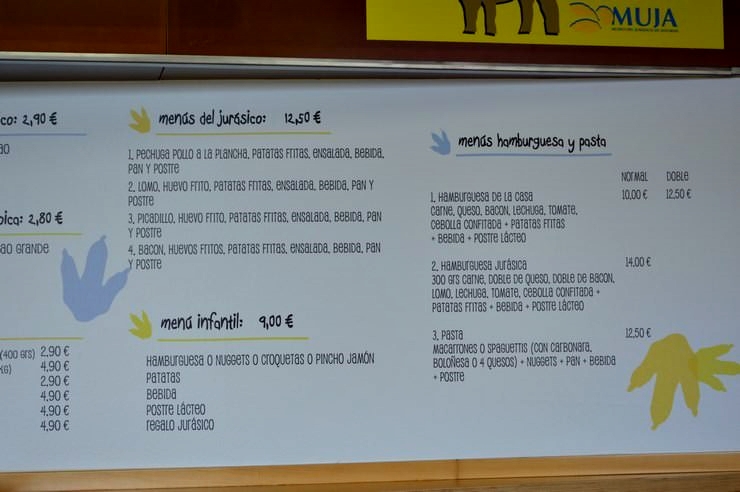 MUJA
co: 2,90 €
ao
pica: 2,80 €
ao grande
(400 grs) 2,90 €
KG) 4,90 €
2,90 €
4,90 €
4,90 €
4,90 €
menús del jurásico: 12,50 €
1. Pechuga pollo a la plancha, patatas fritas, ensalada, bebida,
pan y postre
2. Lomo, huevo frito, patatas fritas, ensalada, bebida, pan y
postre
3. Picadillo, huevo frito, patatas fritas, ensalada, bebida, pan
y postre
4. Bacon, huevos fritos, patatas fritas, ensalada, bebida, pan
y postre
menú infantil: 9,00 €
Hamburguesa o nuggets o croquetas o pincho jamón
Patatas
Bebida
Postre lácteo
Regalo jurásico
menús hamburguesa y pasta
Normal Doble
1. Hamburguesa de la casa 10,00 € 12,50 €
Carne, queso, bacon, lechuga, tomate,
cebolla confitada + patatas fritas
+ bebida + postre lácteo
2. Hamburguesa jurásica 14,00 €
300 grs carne, doble de queso, doble de bacon,
lomo, lechuga, tomate, cebolla confitada +
patatas fritas + bebida + postre lácteo
3. Pasta 12,50 €
Macarrones o spaguettis (con carbonara,
boloñesa o 4 quesos) + nuggets + pan + bebida
+ postre